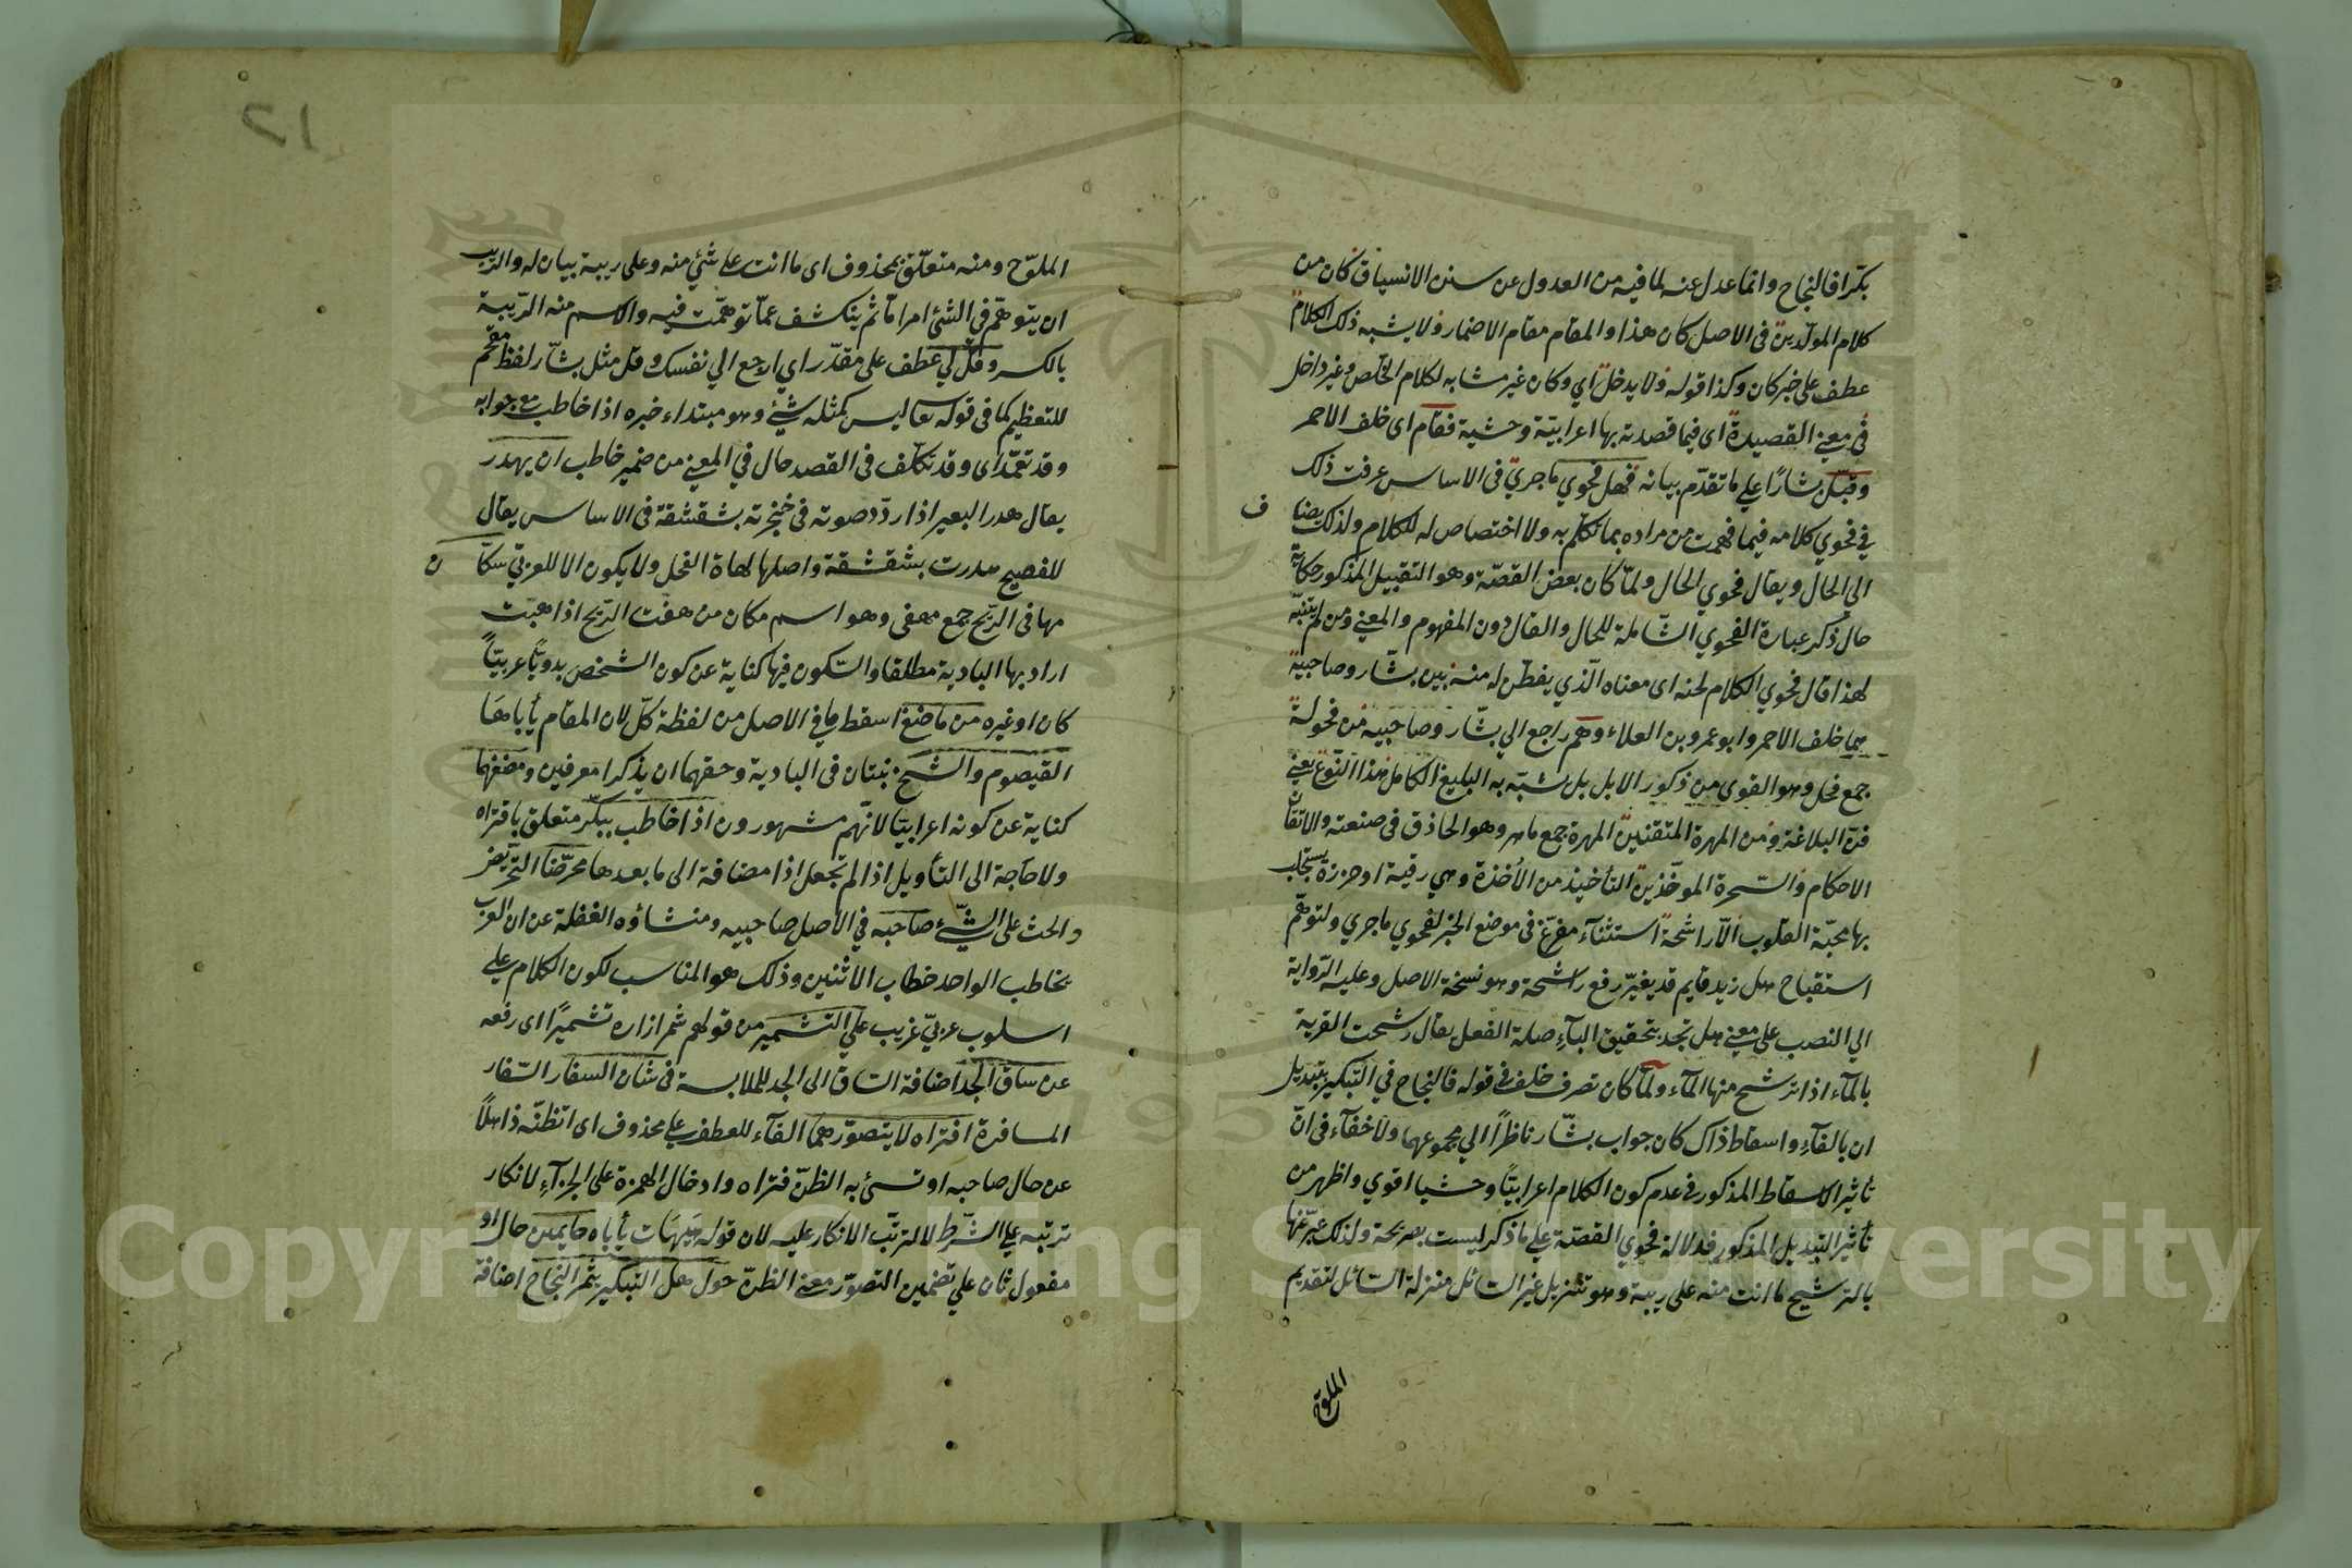 بكّرا فالنجاح وانما عدل عنه لما فيه من العدول عن سنن الانسياق كان من
كلام المولّدين في الاصل كان هذا والمقام مقام الاضمار ولا يشبه ذلك الكلام
عطف على خبر كان وكذا قوله ولا يدخل اي وكان غير مشابه لكلام الخلّص وغير داخل
في معنى القصيدة اى فيما قصدته بها اعرابيّة وحشية فقام اى خلف الاحمر
وقبّل بشارًا على ما تقدّم بيانه فهل فحوي ما جري في الاساس عرفت ذلك
في فحوي كلامه فيما فهمت من مراده بما تكلّم به ولا اختصاص له للكلام ولذلك يضا
ف
الي الحال ويقال فحوي الحال ولمّا كان بعض القصّة وهو التقبيل المذكور حكاية
حال ذكر عبارة الفحوي الشّاملة للحال والقال دون المفهوم والمعنى ومن لم يتنبّه
لهذا قال فحوي الكلام لحنه اى معناه الّذي يفطن له منه بين بشّار وصاحبيه
هما خلف الاحمر وابو عمرو بن العلاء وهم راجع الي بشّار وصاحبيه من فحولة
جمع فحل وهو القوى من ذكور الابل بل شبّه به البليغ الكامل هذا النّوع يعنى
فن البلاغة ومن المهرة المتقنين المهرة جمع ماهر وهو الحاذق في صنعته والاتقان
الاحكام والسّحرة الموخّذين التأخيذ من الأُخذة وهي رقية او خرزة يستجلب
بها محبّة القلوب الّا راشحة استثناء مفرّغ في موضع الخبر لفحوي ما جري ولتوهّم
استقباح هل زيد قايم قد يغيّر رفع راشحة وهو نسخة الاصل وعليه الرّواية
الي النصب على معنى هل تجد بتحقيق الباء صلة الفعل يقال رشحت القربة
بالماء اذا ترشح منها الماء ولمّا كان تصرف خلف في قوله فالنجاح في التبكير بتبديل
ان بالفاء واسقاط ذاك كان جواب بشّار ناظرًا الي مجموعهما ولا خفاء في انّ
تأثير الاسقاط المذكور في عدم كون الكلام اعرابيًّا وحشيا اقوي واظهر من
تأثير التبديل المذكور فدلالة فحوي القصّة على ما ذكر ليست بصريحة ولذلك عبّر عنها
بالترشيح ما انت منه على ريبة وهو تنزيل غير السائل منزلة السّائل لتقديم
الملوّح
١٢
الملوّح ومنه متعلّق بمحذوف اى ما انت على شئ منه وعلى ريبة بيان له والرّيب
ان يتوهّم في الشئ امرا مّا ثم ينكشف عمّا توهّمت فيه والاسم منه الرّيبة
بالكسر وقل لي عطف على مقدّر اي ارجع الي نفسك وقل مثل بشّار لفظ مقحم
للتعظيم كما في قوله تعا ليس كمثله شئ وهو مبتداء خبره اذا خاطب مع جوابه
وقد تعمّد اى وقد تكلّف في القصد حال في المعنى من ضمير خاطب ان يهدر
يقال هدر البعير اذا ردّد صوته في حنجرته بشقشقة في الاساس يقال
للفصيح هدرت بشقشقة واصلها لهاة الفحل ولا يكون الا للعربيّ سكّا
ن
مهافي الرّيح جمع مهفى وهو اسم مكان من هفت الرّيح اذا هبّت
اراد بها البادية مطلقا والسّكون فيها كناية عن كون الشخص بدويًّا عربيّاً
كان او غيره من ماضغ اسقط ما في الاصل من لفظة كلّ لان المقام يأباها
القيصوم والشيح نبتان في البادية وحقهما ان يذكرا معرفين ومضغهما
كناية عن كونه اعرابيّا لانّهم مشهورون اذا خاطب ببكّر متعلق بافتراه
ولا حاجة الى التأويل اذا لم تجعل اذا مضافة الى ما بعدها محرّضا التحريض
والحث على الشّئ صاحبه في الاصل صاحبيه ومنشاؤه الغفلة عن ان العرب
يخاطب الواحد خطاب الاثنين وذلك هو المناسب لكون الكلام على
اسلوب عربيّ غريب على التشمير من قولهم شمر ازاره تشميرًا اى رفعه
عن ساق الجد اضافة السّاق الى الجد للملابسة في شان السفار السّفار
المسافرة افتراه لا يتصوّر هما الفاء للعطف على محذوف اى اتظنّه ذاهلاً
عن حال صاحبه او تسئ به الظنّ فتراه وادخال الهمزة على الجزاء لانكار
ترتبه على الشّرط لا لترتّب الانكار عليه لان قوله هيهات يأباه حايمين حال او
مفعول ثان على تضمين التصوّر معنى الظنّ حول هل التبكير يثمر النجاح اضافة
Copyright © King Saud University